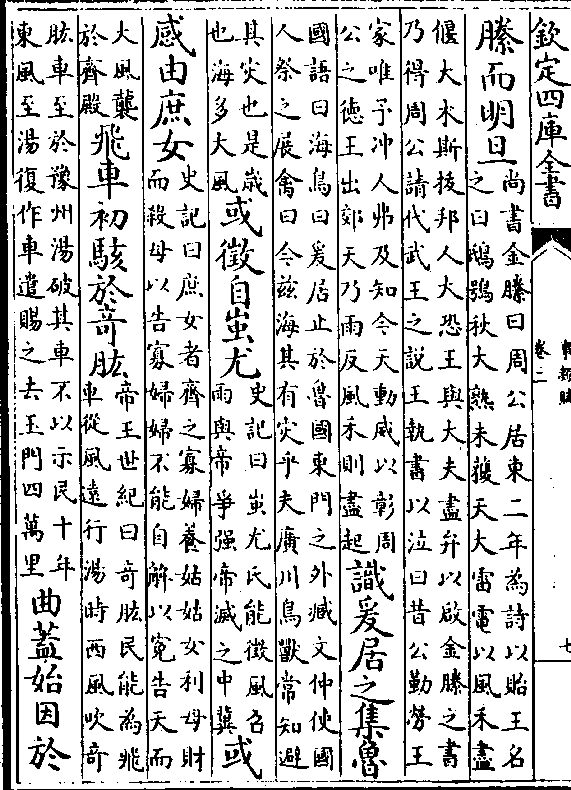 欽定四庫全書
卷二
七
縢而明旦尚書金縢曰周公居東二年為詩以貽王名
之曰鴟鴞秋大熟未穫天大雷電以風禾盡
偃大木斯拔邦人大恐王與大夫盡弁以啟金縢之書
乃得周公請代武王之說王執書以泣曰昔公勤勞王
家唯予冲人弗及知今天動威以彰周
公之徳王出郊天乃雨反風禾則盡起識爰居之集魯
國語曰海鳥曰爰居止於魯國東門之外臧文仲使國
人祭之展禽曰今兹海其有灾乎夫廣川鳥獸常知避
其灾也是嵗
也海多大風或徵自蚩尤史記曰蚩尤氏能徵風召
雨與帝爭强帝滅之中冀或
感由庶女史記曰庶女者齊之寡婦養姑姑女利母財
而殺母以告寡婦婦不能自解以寃告天而
大風襲
於齊殿飛車初駭於竒肱帝王世紀曰竒肱民能為飛
車從風遠行湯時西風吹竒
肱車至於豫州湯破其車不以示民十年
東風至湯復作車遣賜之去玉門四萬里曲蓋始因於